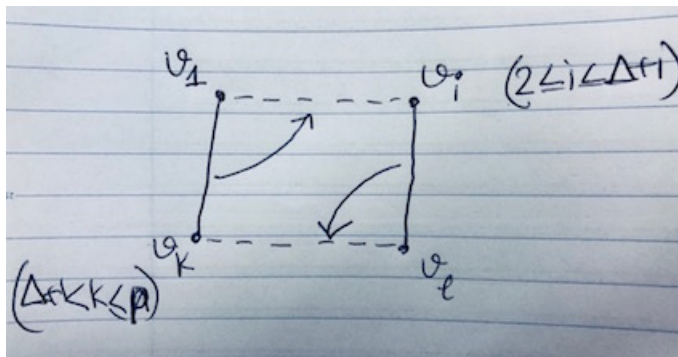 v₁ vᵢ (2≤i≤Δ+1)
vₖ vₗ
(Δ+1<k≤p)